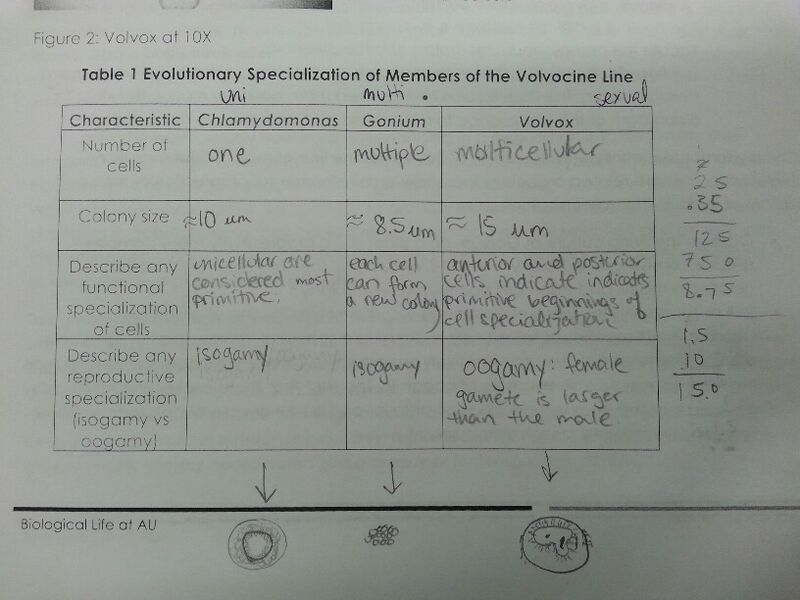 Figure 2: Volvox at 10X
Table 1 Evolutionary Specialization of Members of the Volvocine Line
uni multi sexual
Characteristic Chlamydomonas Gonium Volvox
Number of
cells
one
multiple
multicellular
Colony size
≈10 um
≈ 8.5um
≈ 15 um
Describe any
functional
specialization
of cells
unicellular are
considered most
primitive.
each cell
can form
a new colony
anterior and posterior
cells indicate indicates
primitive beginnings of
cell specialization.
Describe any
reproductive
specialization
(isogamy vs
oogamy)
isogamy
isogamy
oogamy: female
gamete is larger
than the male.
25
.35
125
750
8.75
1.5
10
15.0
Biological Life at AU